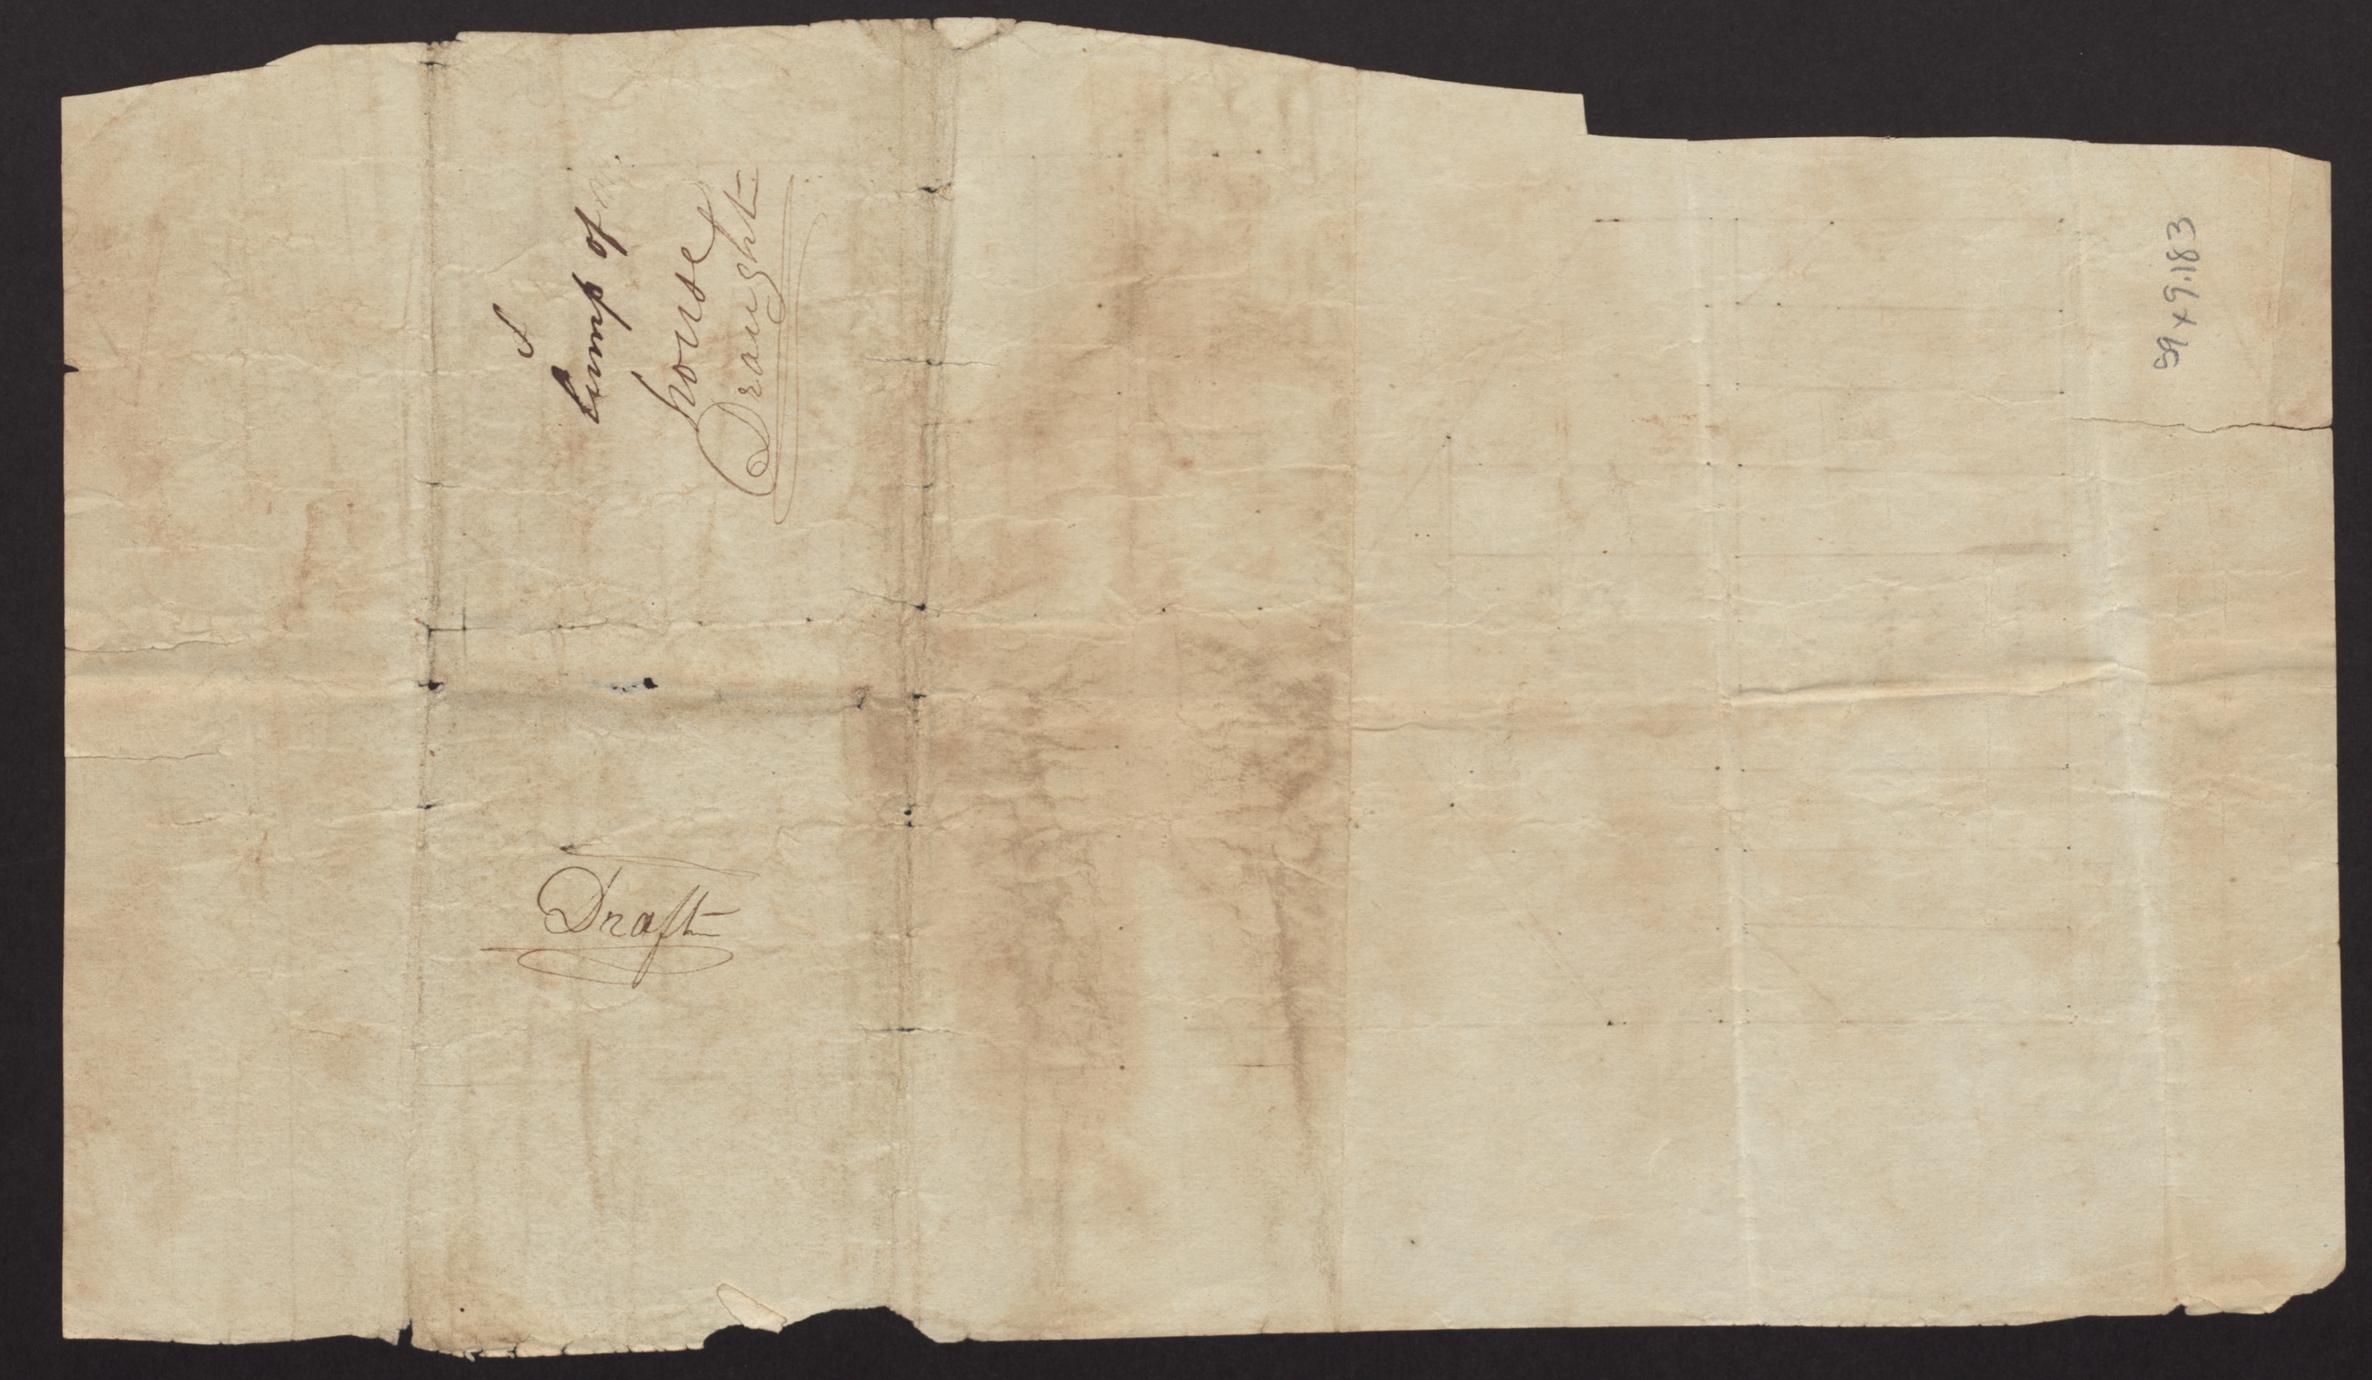 of
house
Draught
Draft
59 x 9.183